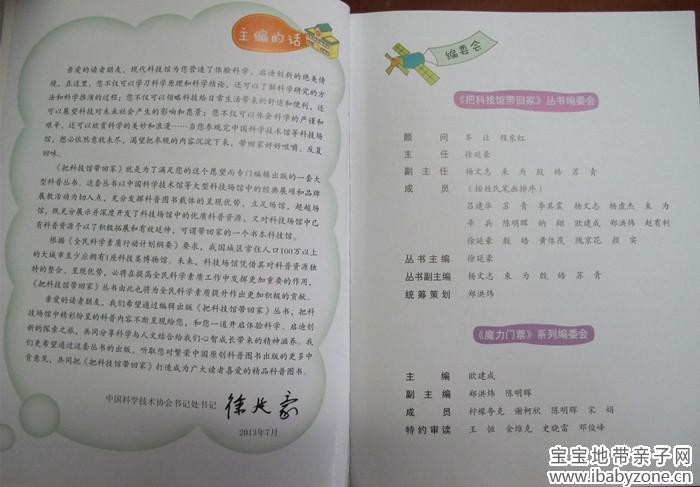 主编的话
亲爱的读者朋友，现代科技馆为您营造了体验科学、启迪创新的绝美情
境，在这里，您不仅可以学习科学原理和科学结论，还可以了解科学研究的方
法和科学推演的过程；您不仅可以领略科技给日常生活带来的舒适和便利，还
可以展望科技对未来社会产生的影响和愿景；您不仅可以体会科学的严谨和
艰辛，还可以欣赏科学的美妙和浪漫……当您参观完中国科学技术馆等科技场
馆，想必依然意犹未尽，渴望把参观的内容沉淀下来，带回家好好咀嚼、反复
回味。
《把科技馆带回家》就是为了满足您的这个愿望而专门编辑出版的一套大
型科普丛书。这套丛书以中国科学技术馆等大型科技场馆中的经典展项和品牌
展教活动为切入点，充分发挥科普图书载体的呈现优势，立足场馆，超越场
馆，既充分展示并深度开发了科技场馆中的优质科普资源，又对科技场馆中已
有科普资源予以了积极拓展和有效延伸，可谓带回家的一个书本科技馆。
根据《全民科学素质行动计划纲要》要求，我国城区常住人口100万以上
的大城市至少应拥有1座科技类博物馆。未来，科技场馆凭借其对科普资源独
特的整合、呈现优势，必将在提高全民科学素质工作中发挥更加重要的作用，
《把科技馆带回家》丛书由此也将为全民科学素质提升作出更加积极的贡献。
亲爱的读者朋友，我们希望通过编辑出版《把科技馆带回家》丛书，把科
技场馆中精彩纷呈的科普内容不断呈现给您，和您一道开启体验科学、启迪创
新的探索之旅，共同分享科学与人文结合给我们心智成长带来的精神滋养。我
们更希望通过这套丛书的出版，听取您对繁荣中国原创科普图书出版的更多中
肯意见，共同把《把科技馆带回家》打造成为广大读者喜爱的精品科普图书。
中国科学技术协会书记处书记 徐延豪
2013年7月
编委会
《把科技馆带回家》丛书编委会
顾 问 齐 让 程东红
主 任 徐延豪
副主任 杨文志 束 为 殷 皓 苏 青
成 员 （按姓氏笔画排序）
吕建华 苏 青 李其震 杨文志 杨虚杰 束 为
辛 兵 陈明晖 纳 翔 欧建成 郑洪炜 赵有利
徐延豪 殷 皓 黄体茂 隗京花 颜 实
丛书主编 徐延豪
丛书副主编 杨文志 束 为 殷 皓 苏 青
统筹策划 郑洪炜
《魔力门票》系列编委会
主 编 欧建成
副主编 郑洪炜 陈明晖
成 员 柠檬夸克 谢柯欣 陈明晖 宋 娟
特约审读 王 恒 金维克 史晓雷 邓俊峰
宝宝地带亲子网
www.ibabyzone.cn